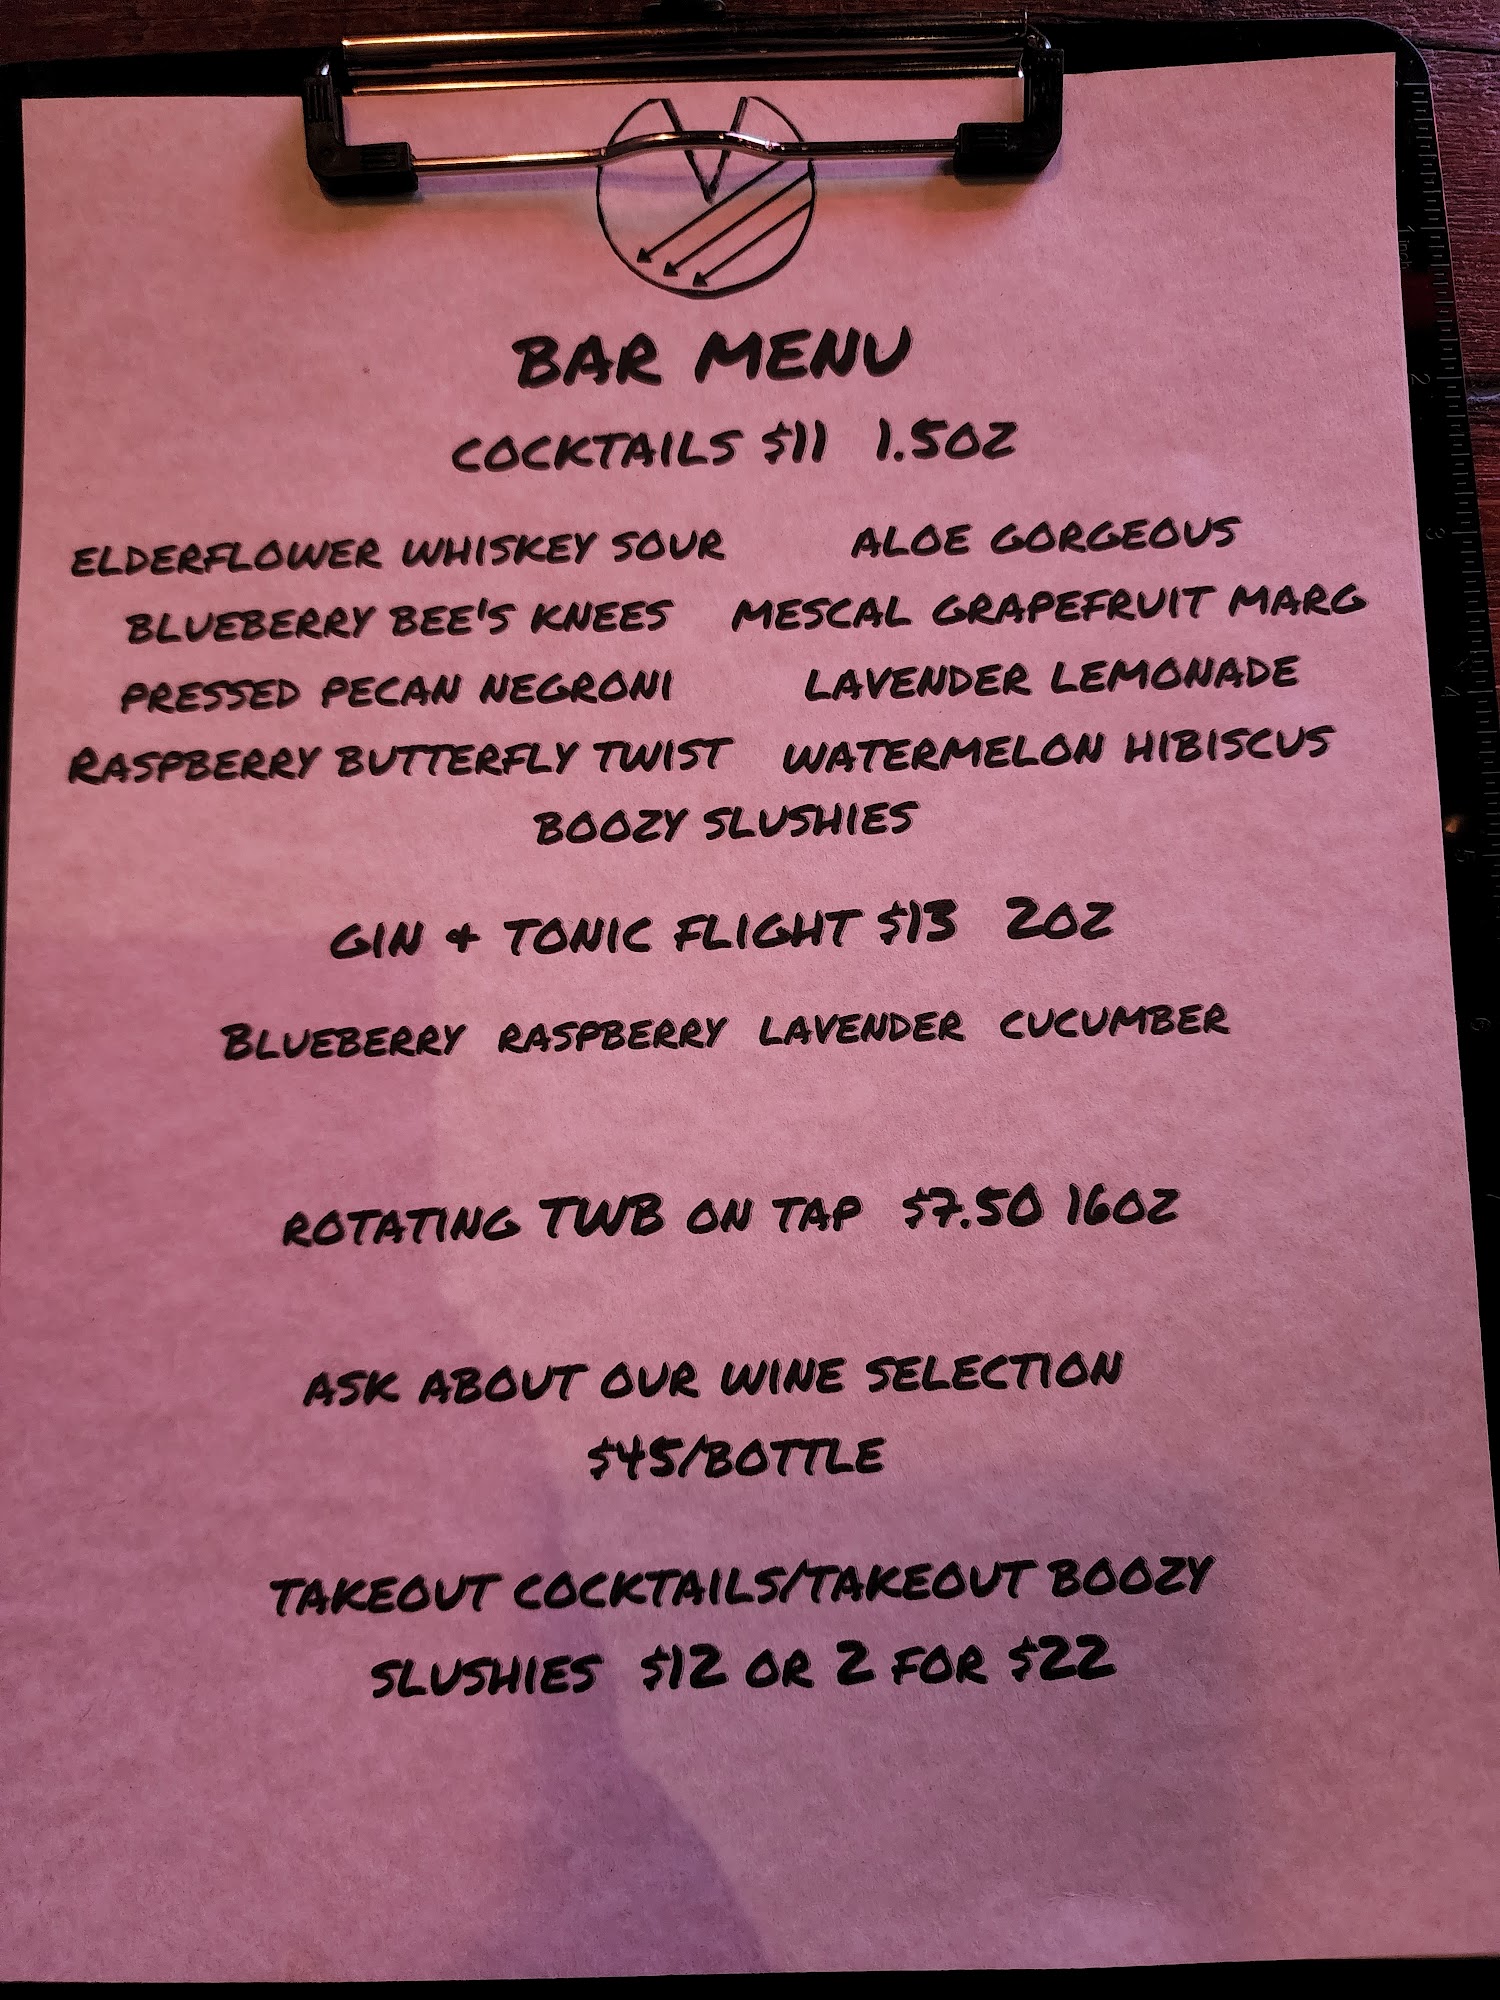 BAR MENU
COCKTAILS $11 1.5OZ
ELDERFLOWER WHISKEY SOUR ALOE GORGEOUS
BLUEBERRY BEE'S KNEES MESCAL GRAPEFRUIT MARG
PRESSED PECAN NEGRONI LAVENDER LEMONADE
RASPBERRY BUTTERFLY TWIST WATERMELON HIBISCUS
BOOZY SLUSHIES
GIN & TONIC FLIGHT $13 2OZ
BLUEBERRY RASPBERRY LAVENDER CUCUMBER
ROTATING TWB ON TAP $7.50 16OZ
ASK ABOUT OUR WINE SELECTION
$45/BOTTLE
TAKEOUT COCKTAILS/TAKEOUT BOOZY
SLUSHIES $12 OR 2 FOR $22
1 inch
2
3
4
5
6
7